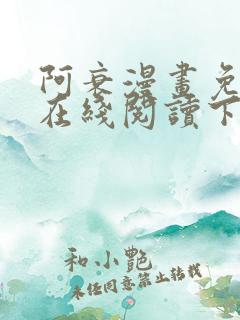 阿衰漫畫免
在綫閱讀下
和小艷
未經同意禁止轉載